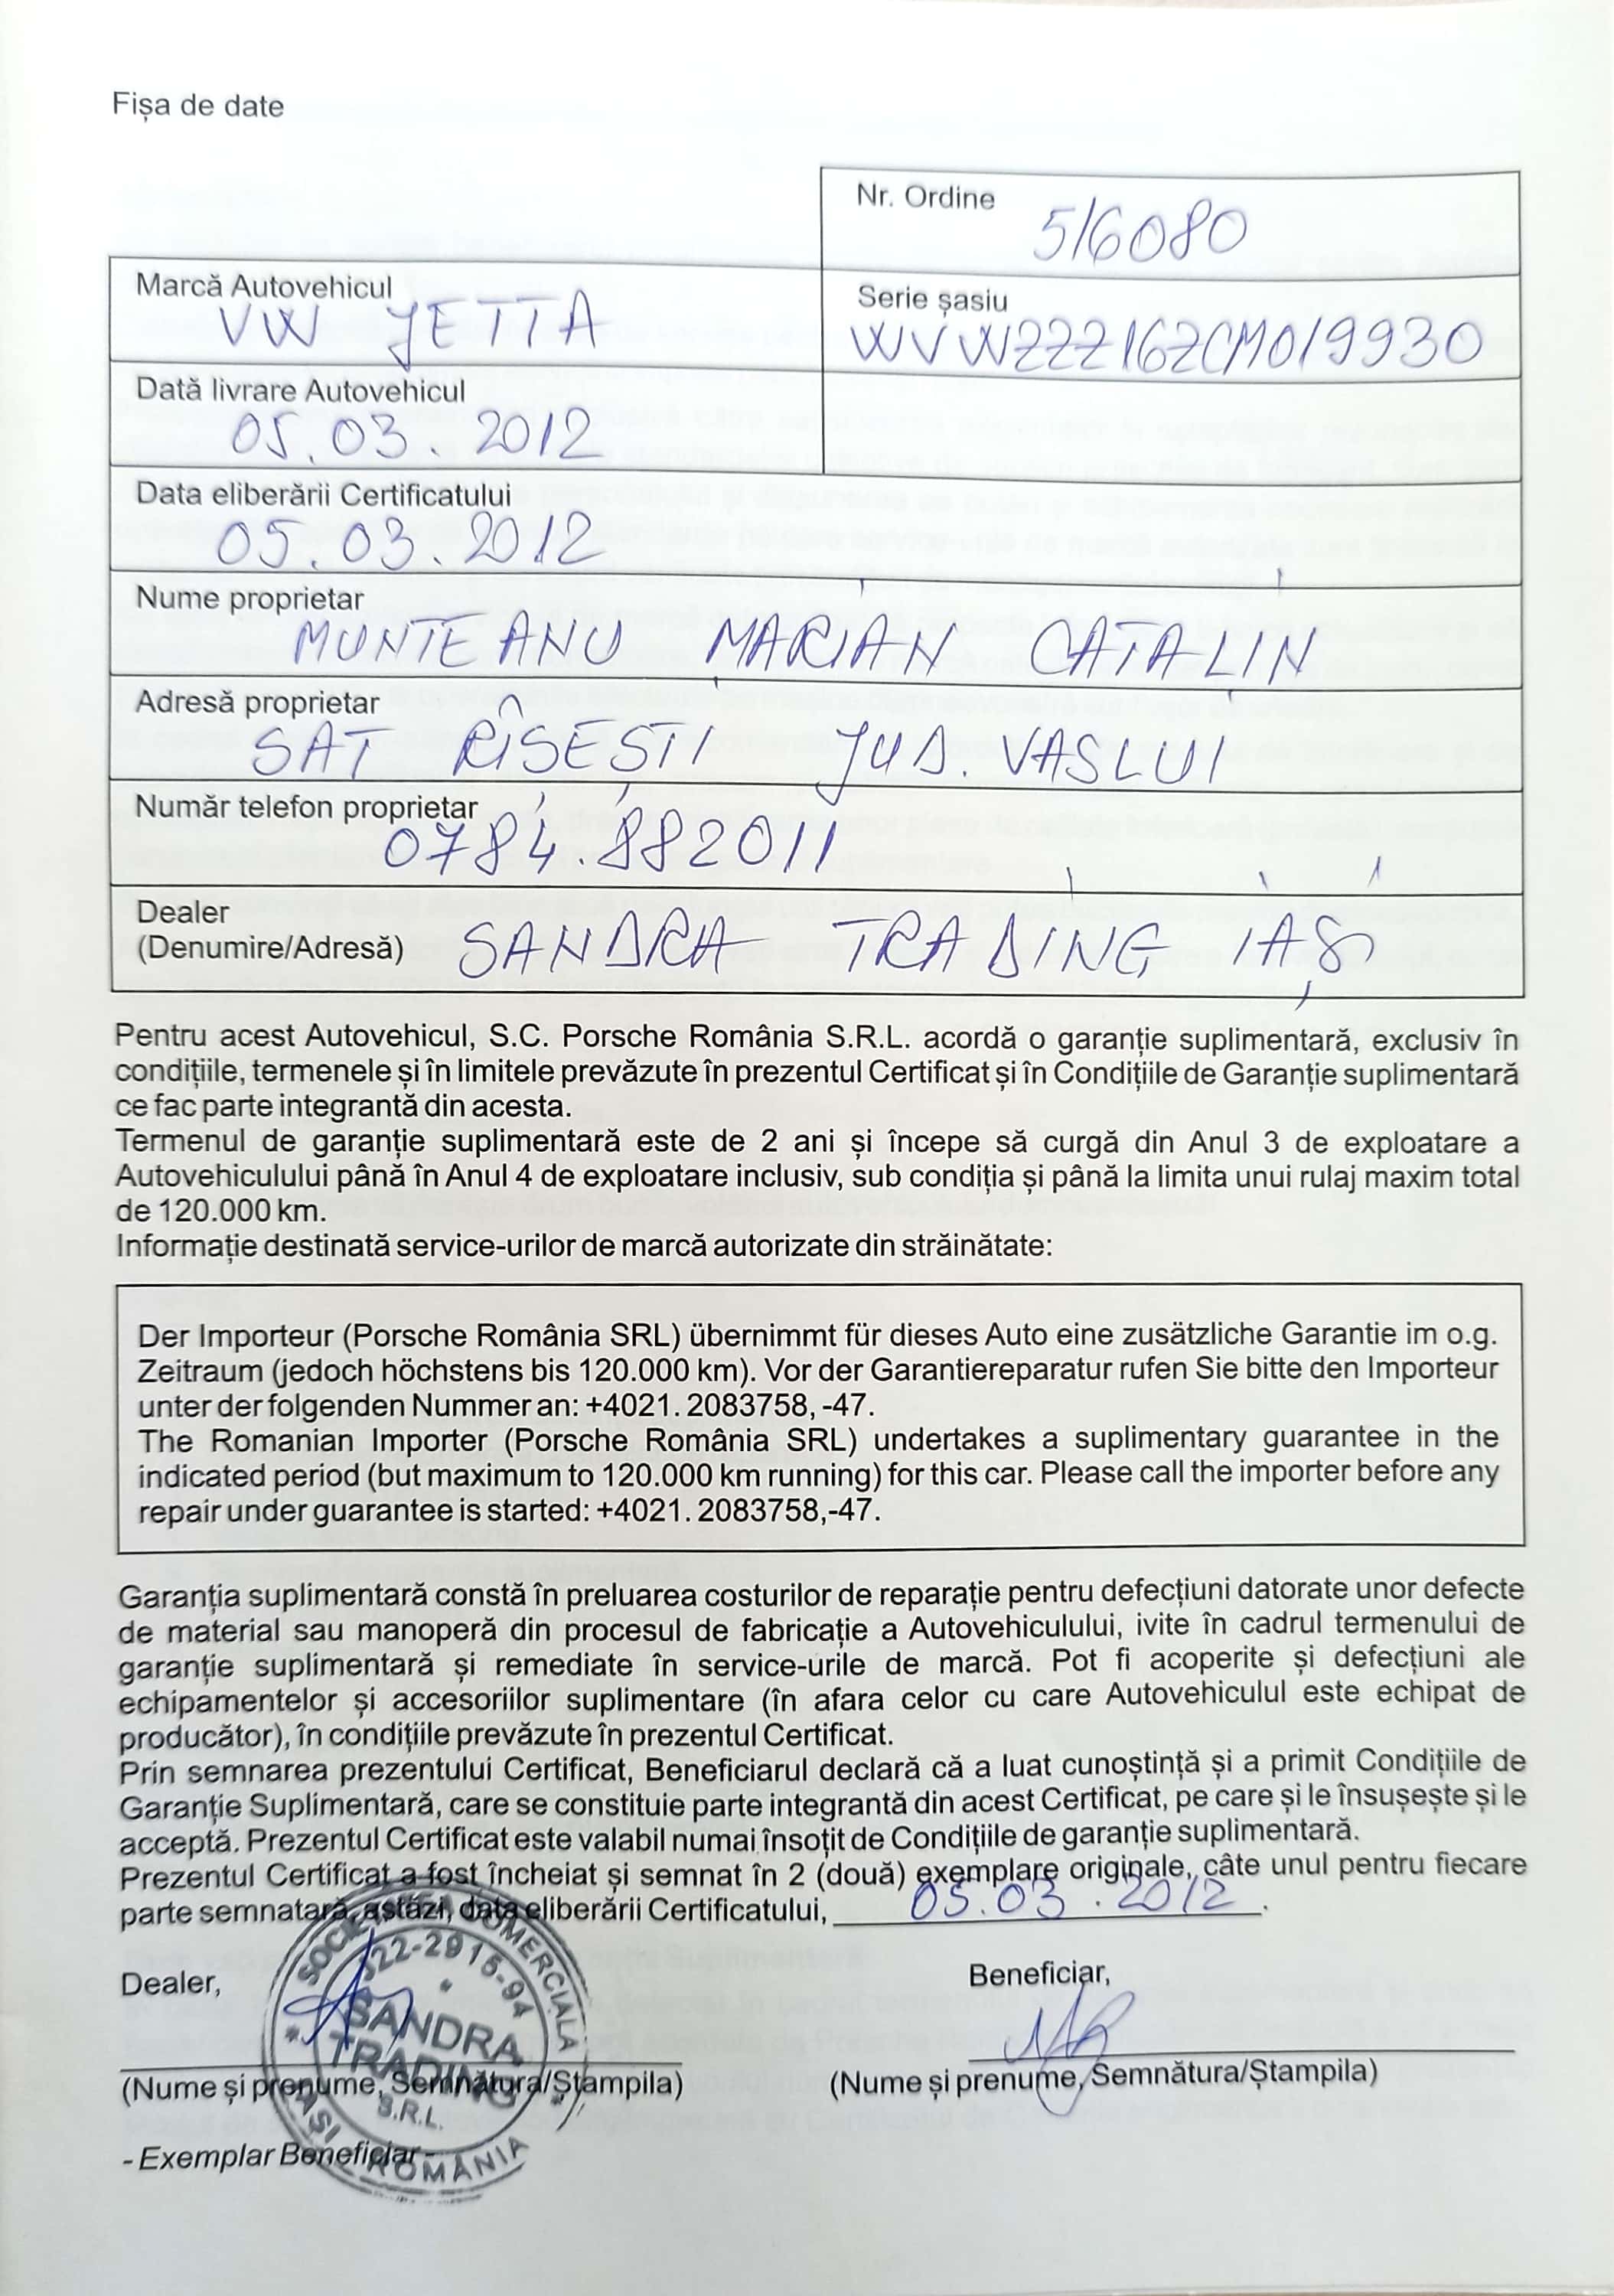 Fișa de date
Nr. Ordine
516080
Marcă Autovehicul
VW JETTA
Serie șasiu
WVWZZZ16ZCM019930
Dată livrare Autovehicul
05.03.2012
Data eliberării Certificatului
05.03.2012
Nume proprietar
MUNTEANU MARIAN CATALIN
Adresă proprietar
SAT RÎSEȘTI JUD. VASLUI
Număr telefon proprietar
0784.882011
Dealer
(Denumire/Adresă) SANDRA TRADING IAȘI
Pentru acest Autovehicul, S.C. Porsche România S.R.L. acordă o garanție suplimentară, exclusiv în
condițiile, termenele și în limitele prevăzute în prezentul Certificat și în Condițiile de Garanție suplimentară
ce fac parte integrantă din acesta.
Termenul de garanție suplimentară este de 2 ani și începe să curgă din Anul 3 de exploatare a
Autovehiculului până în Anul 4 de exploatare inclusiv, sub condiția și până la limita unui rulaj maxim total
de 120.000 km.
Informație destinată service-urilor de marcă autorizate din străinătate:
Der Importeur (Porsche România SRL) übernimmt für dieses Auto eine zusätzliche Garantie im o.g.
Zeitraum (jedoch höchstens bis 120.000 km). Vor der Garantiereparatur rufen Sie bitte den Importeur
unter der folgenden Nummer an: +4021. 2083758, -47.
The Romanian Importer (Porsche România SRL) undertakes a suplimentary guarantee in the
indicated period (but maximum to 120.000 km running) for this car. Please call the importer before any
repair under guarantee is started: +4021. 2083758,-47.
Garanția suplimentară constă în preluarea costurilor de reparație pentru defecțiuni datorate unor defecte
de material sau manoperă din procesul de fabricație a Autovehiculului, ivite în cadrul termenului de
garanție suplimentară și remediate în service-urile de marcă. Pot fi acoperite și defecțiuni ale
echipamentelor și accesoriilor suplimentare (în afara celor cu care Autovehiculul este echipat de
producător), în condițiile prevăzute în prezentul Certificat.
Prin semnarea prezentului Certificat, Beneficiarul declară că a luat cunoștință și a primit Condițiile de
Garanție Suplimentară, care se constituie parte integrantă din acest Certificat, pe care și le însușește și le
acceptă. Prezentul Certificat este valabil numai însoțit de Condițiile de garanție suplimentară.
Prezentul Certificat a fost încheiat și semnat în 2 (două) exemplare originale, câte unul pentru fiecare
parte semnatară, astăzi, data eliberării Certificatului, 05.03.2012.
Dealer,
Beneficiar,
SOCIETATEA COMERCIALĂ
J22-2915-94
SANDRA
TRADING
S.R.L.
IAȘI ROMÂNIA
(Nume și prenume, Semnătura/Ștampila)
(Nume și prenume, Semnătura/Ștampila)
- Exemplar Beneficiar -